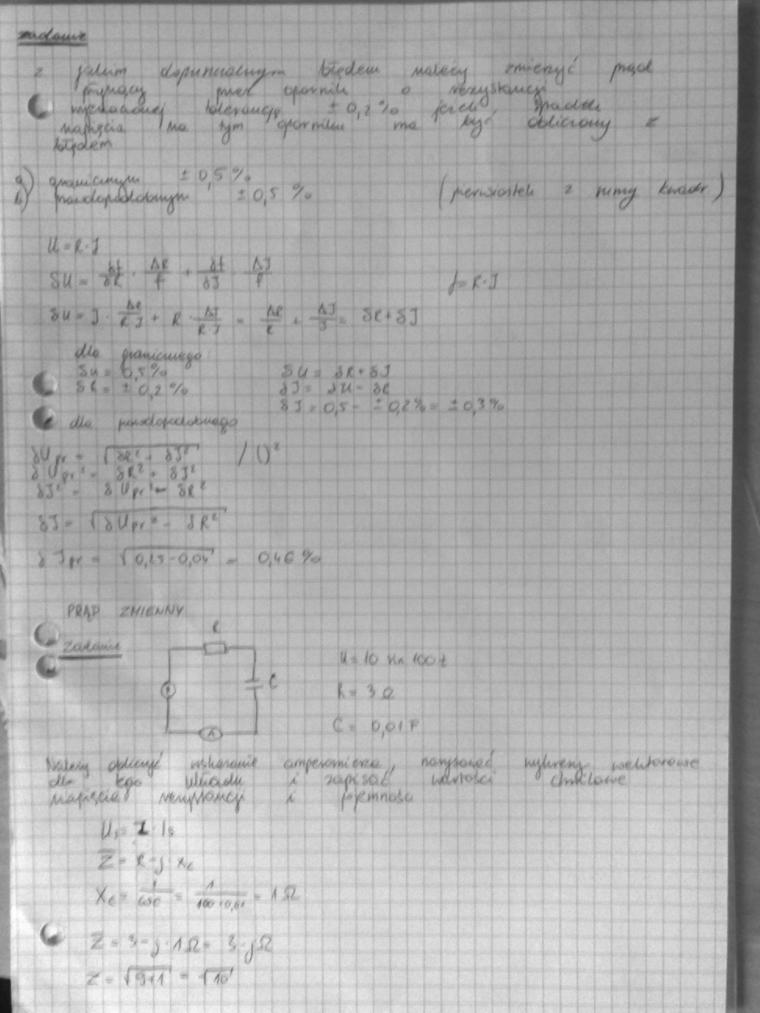 zadanie
z jakim dopuszczalnym błędem należy zmierzyć prąd
płynący przez opornik o rezystancji
wyznaczonej tolerancją ± 0,2 % jeżeli spadek
napięcia na tym oporniku ma być obliczony z
błędem
a) granicznym ± 0,5 %
b) prawdopodobnym ± 0,5 % (pierwiastek z sumy kwadr)
U = R·J
δU = δf/δR · ΔR/f + δf/δJ · ΔJ/f f = R·J
δU = J · ΔR/RJ + R · ΔJ/RJ = ΔR/R + ΔJ/J = δR + δJ
dla granicznego
δU = 0,5% δU = δR + δJ
δR = ± 0,2 % δJ = δU - δR
δJ = 0,5 - ± 0,2% = ± 0,3%
dla prawdopodobnego
δUpr = √(δR² + δJ²) / ()²
δUpr² = δR² + δJ²
δJ² = δUpr² - δR²
δJ = √(δUpr² - δR²)
δJpr = √(0,25 - 0,04) = 0,46 %
PRĄD ZMIENNY
R
zadanie
U = 10 sin 100t
C
R = 3 Ω
A
C = 0,01 F
Należy obliczyć wskazanie amperomierza, narysować wykresy wektorowe
dla tego układu i zapisać wartości chwilowe
napięcia rezystancji i pojemności
Z = R - j xc
Xc = 1/ωC = 1/100·0,01 = 1 Ω
Z = 3 - j · 1 Ω = 3 - j Ω
Z = √(9+1) = √10